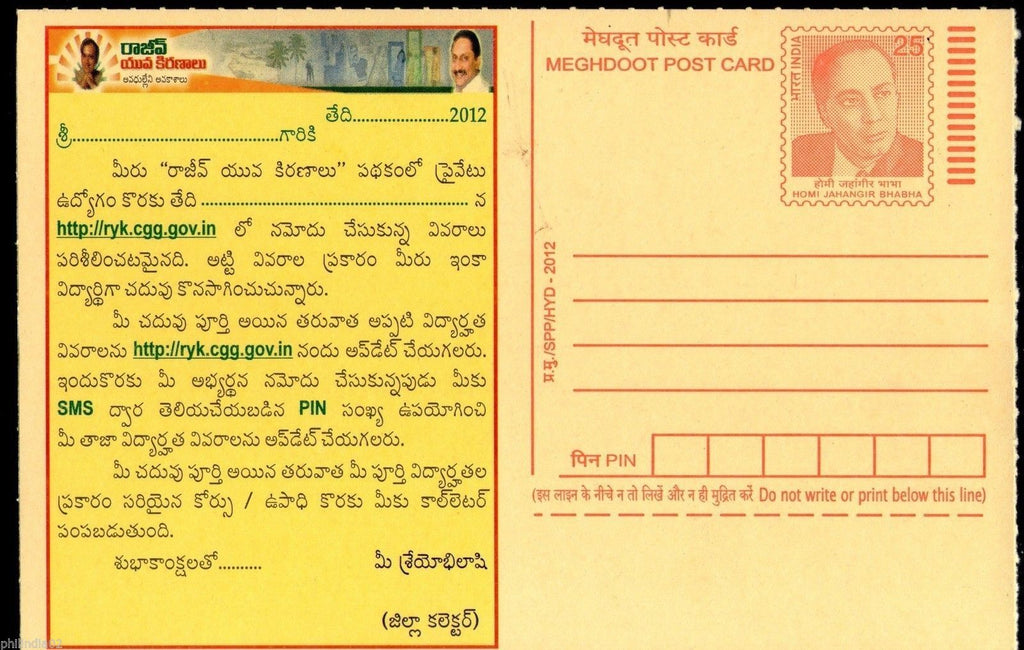 రాజీవ్
యువ కిరణాలు
అవధుల్లేని అవకాశాలు
తేది......................2012
శ్రీ...............................................గారికి
మీరు “రాజీవ్ యువ కిరణాలు” పథకంలో ప్రైవేటు
ఉద్యోగం కొరకు తేది ............................................................. న
http://ryk.cgg.gov.in లో నమోదు చేసుకున్న వివరాలు
పరిశీలించటమైనది. అట్టి వివరాల ప్రకారం మీరు ఇంకా
విద్యార్థిగా చదువు కొనసాగించుచున్నారు.
మీ చదువు పూర్తి అయిన తరువాత అప్పటి విద్యార్హత
వివరాలను http://ryk.cgg.gov.in నందు అప్‌డేట్ చేయగలరు.
ఇందుకొరకు మీ అభ్యర్థన నమోదు చేసుకున్నపుడు మీకు
SMS ద్వార తెలియచేయబడిన PIN సంఖ్య ఉపయోగించి
మీ తాజా విద్యార్హత వివరాలను అప్‌డేట్ చేయగలరు.
మీ చదువు పూర్తి అయిన తరువాత మీ పూర్తి విద్యార్హతల
ప్రకారం సరియైన కోర్సు / ఉపాధి కొరకు మీకు కాల్‌లెటర్
పంపబడుతుంది.
శుభాకాంక్షలతో.......... మీ శ్రేయోభిలాషి
(జిల్లా కలెక్టర్)
मेघदूत पोस्ट कार्ड
MEGHDOOT POST CARD
भारत INDIA
25
होमी जहांगीर भाभा
HOMI JAHANGIR BHABHA
प्र.मु./SPP/HYD - 2012
पिन PIN
(इस लाइन के नीचे न तो लिखें और न ही मुद्रित करें Do not write or print below this line)
philindia92